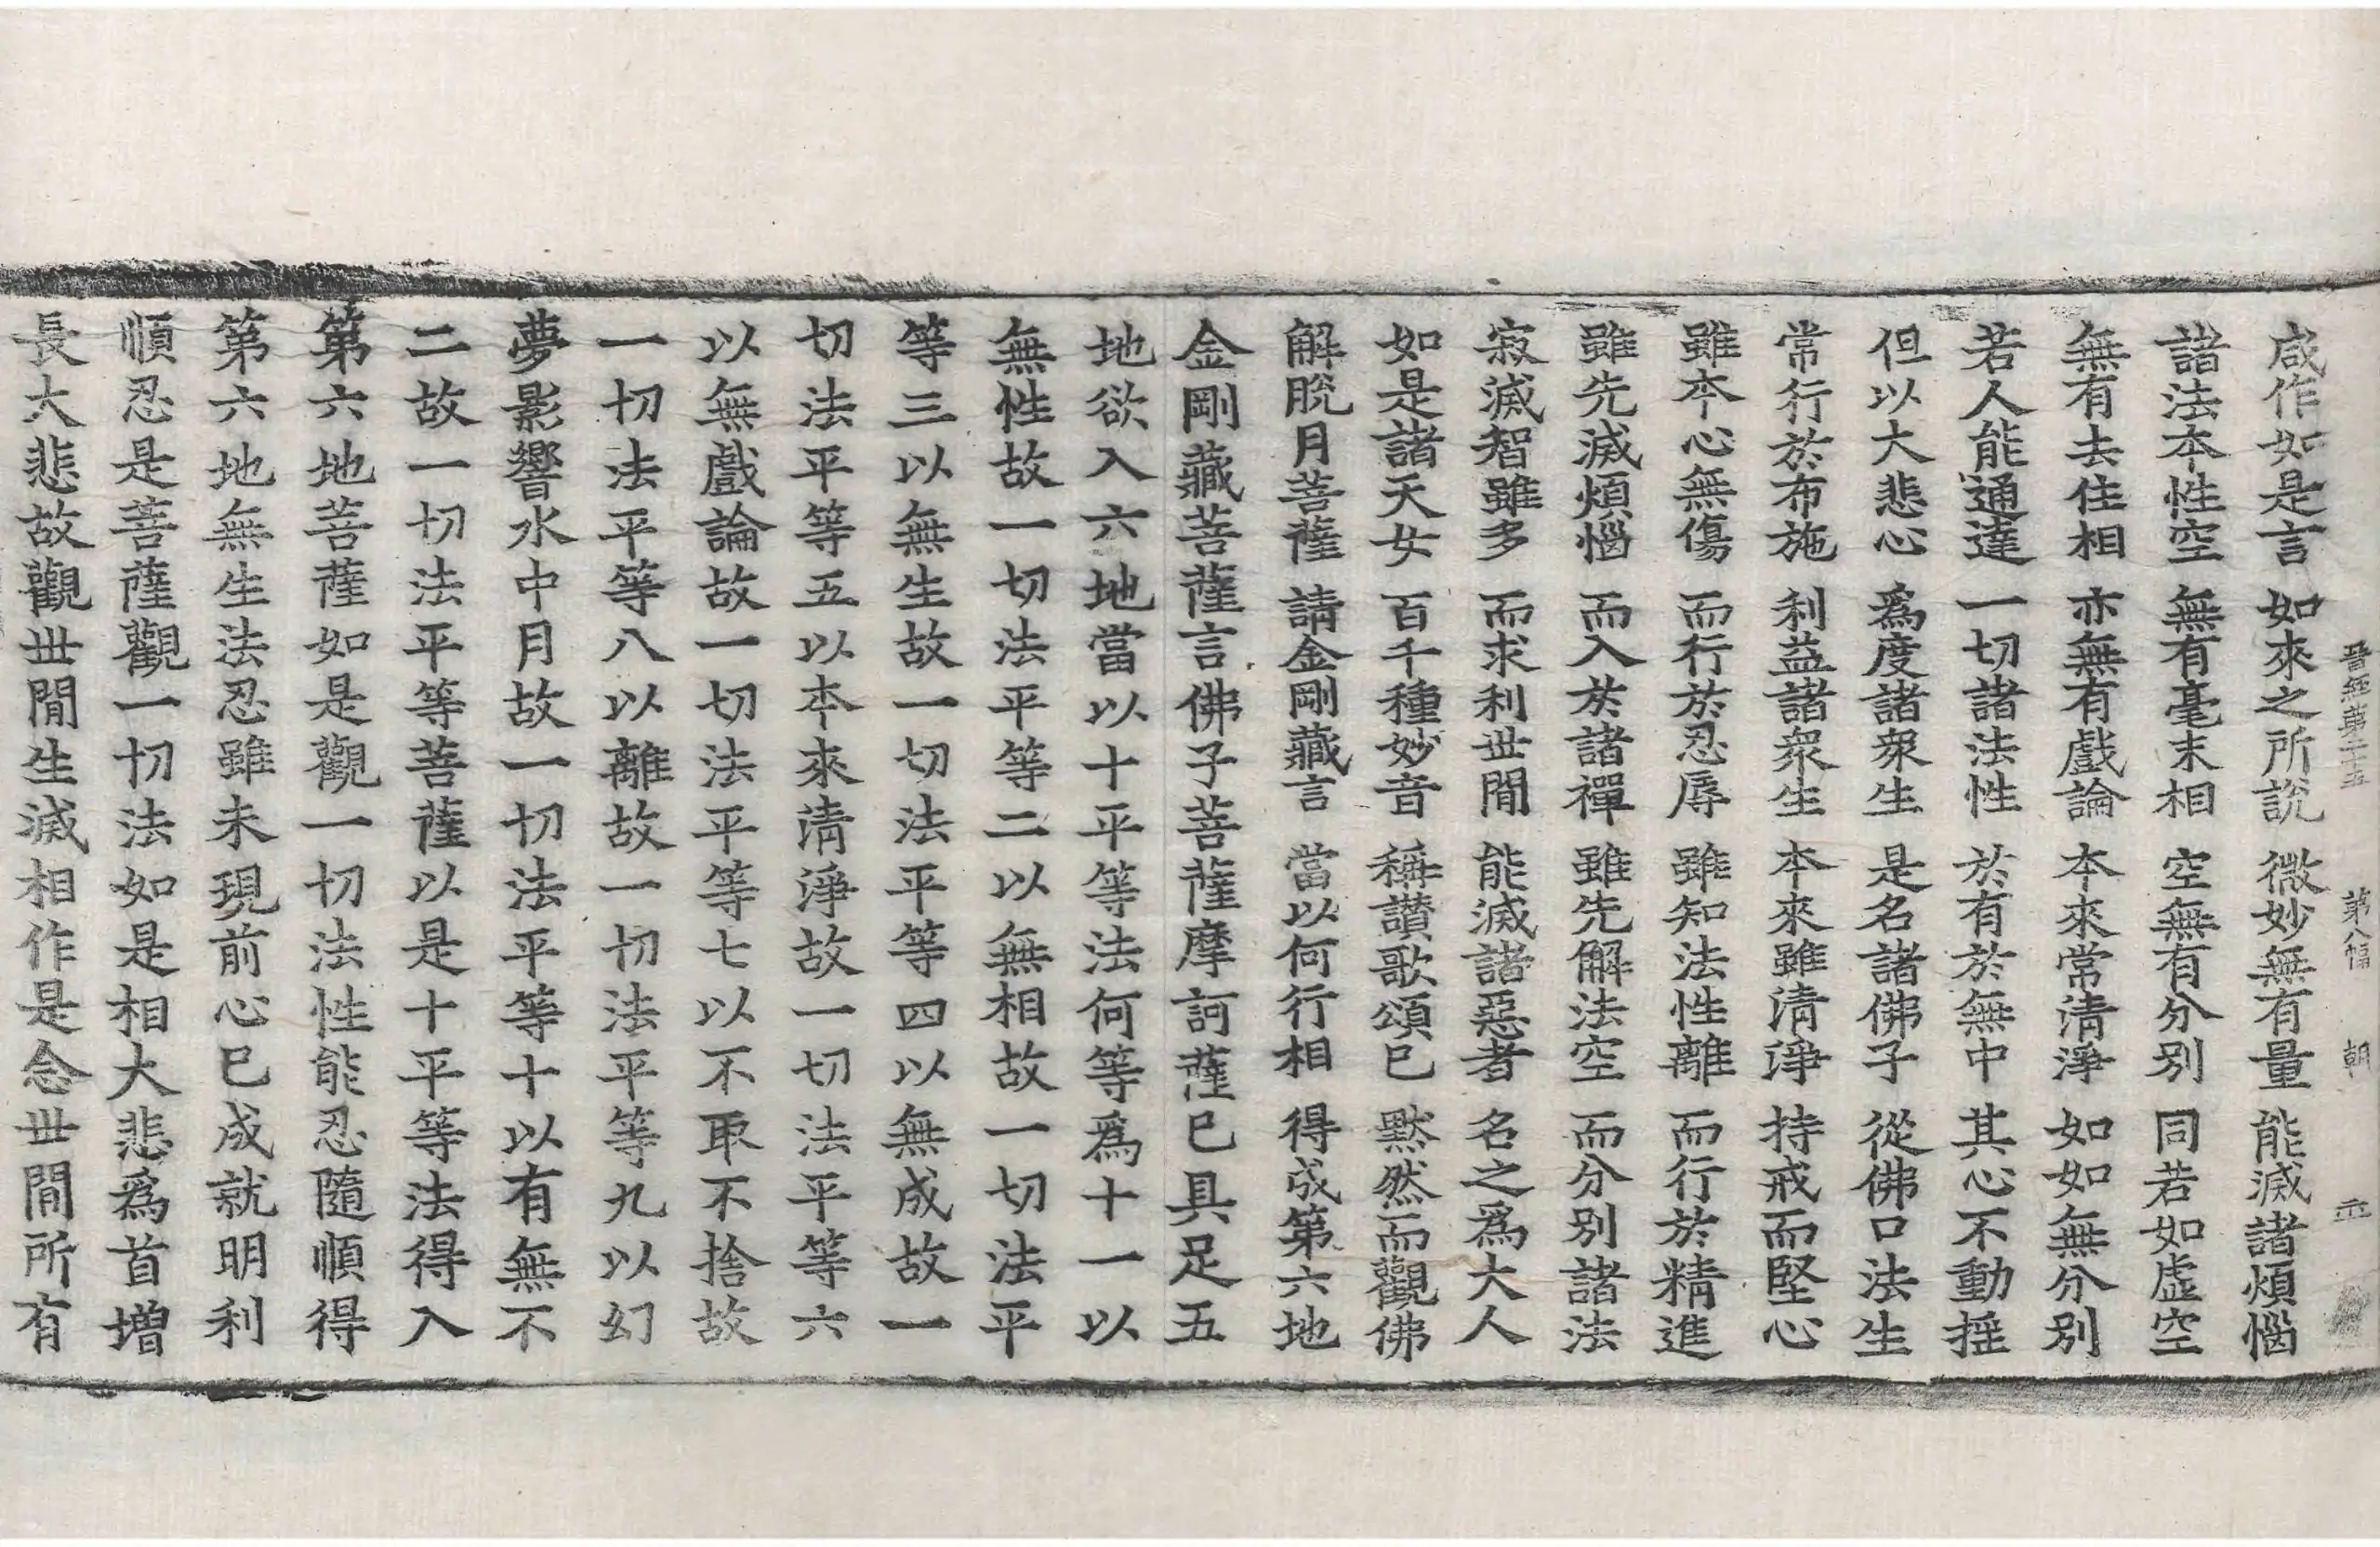 晉經第二十五 第八幅 朝
咸作如是言 如來之所說 微妙無有量 能滅諸煩惱
諸法本性空 無有毫末相 空無有分別 同若如虛空
無有去住相 亦無有戲論 本來常清淨 如如無分別
若人能通達 一切諸法性 於有於無中 其心不動揺
但以大悲心 爲度諸衆生 是名諸佛子 從佛口法生
常行於布施 利益諸衆生 本來雖清淨 持戒而堅心
雖本心無傷 而行於忍辱 雖知法性離 而行於精進
雖先滅煩惱 而入於諸禪 雖先解法空 而分別諸法
寂滅智雖多 而求利世閒 能滅諸惡者 名之爲大人
如是諸天女 百千種妙音 稱讃歌頌已 黙然而觀佛
解脫月菩薩 請金剛藏言 當以何行相 得成第六地
金剛藏菩薩言佛子菩薩摩訶薩已具足五
地欲入六地當以十平等法何等爲十一以
無性故一切法平等二以無相故一切法平
等三以無生故一切法平等四以無成故一
切法平等五以本來清淨故一切法平等六
以無戲論故一切法平等七以不取不捨故
一切法平等八以離故一切法平等九以幻
夢影響水中月故一切法平等十以有無不
二故一切法平等菩薩以是十平等法得入
第六地菩薩如是觀一切法性能忍隨順得
第六地無生法忍雖未現前心已成就明利
順忍是菩薩觀一切法如是相大悲爲首増
長大悲故觀世閒生滅相作是念世閒所有